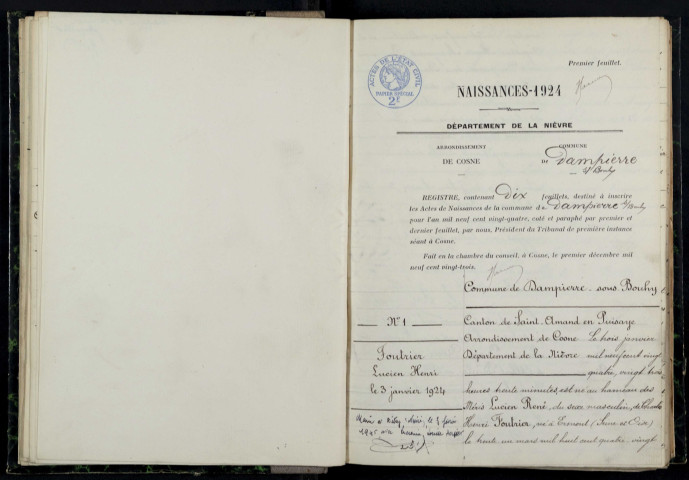 Premier feuillet.
ACTES DE L'ETAT CIVIL
PAPIER SPECIAL
2F
NAISSANCES-1924
DÉPARTEMENT DE LA NIÈVRE
ARRONDISSEMENT
DE COSNE
COMMUNE
DE Dampierre
s/ Bouhy
REGISTRE, contenant Dix feuillets, destiné à inscrire
les Actes de Naissances de la commune de Dampierre s/ Bouhy
pour l'an mil neuf cent vingt-quatre, coté et paraphé par premier et
dernier feuillet, par nous, Président du Tribunal de première instance
séant à Cosne.
Fait en la chambre du conseil, à Cosne, le premier décembre mil
neuf cent vingt-trois.
Commune de Dampierre-sous-Bouhy
Canton de Saint-Amand en Puisaye
Arrondissement de Cosne
Département de la Nièvre
N° 1
Foutrier
Lucien Henri
le 3 janvier 1924
Marié à
1945 avec
Le trois janvier
mil neuf cent vingt
quatre, vingt trois
heures trente minutes, est né au hameau des
Méris Lucien René, du sexe masculin, de Charles
Henri Foutrier, né à Ermont (Seine et Oise)
le trente un mars mil huit cent quatre vingt